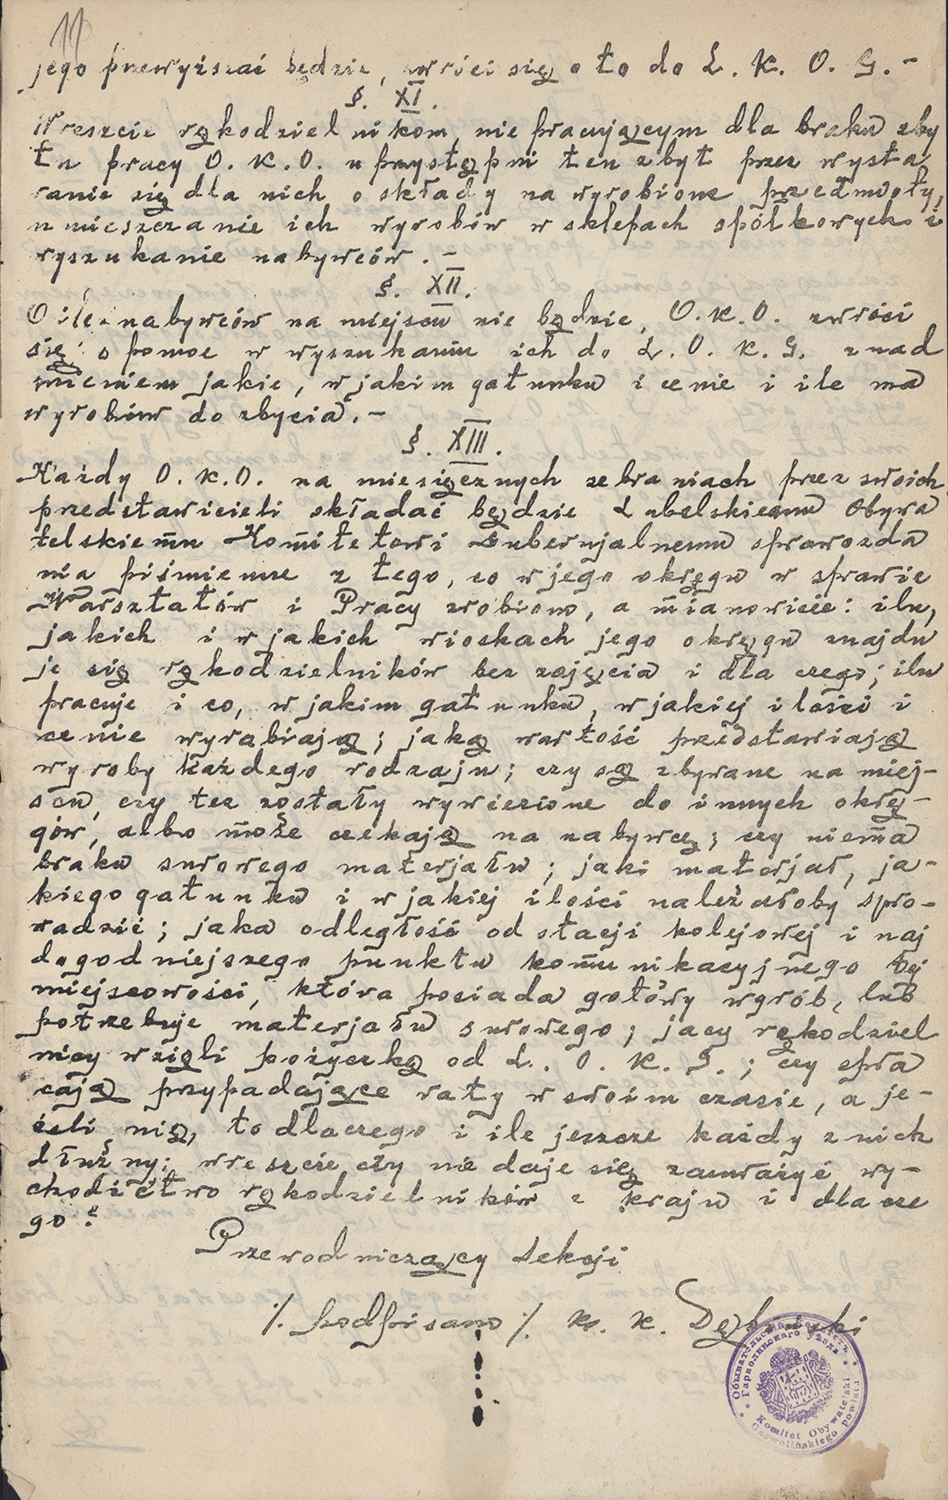 11
jego przewyższać będzie, zwróci się o to do L. K. O. G. –
§. XI.
Wreszcie rękodzielnikom nie pracującym dla braku zby
tu pracy O. K. O. uprzystępni ten zbyt przez wysta
ranie się dla nich o składy na wyrobione przedmioty,
umieszczanie ich wyrobów w sklepach spółkowych i
wyszukanie nabywców. –
§. XII.
O ile nabywców na miejscu nie będzie, O. K. O. zwróci
się o pomoc w wyszukaniu ich do L. O. K. G. z nad
mieniem jakie, w jakim gatunku i cenie i ile ma
wyrobów do zbycia. –
§. XIII.
Każdy O. K. O. na miesięcznych zebraniach przez swoich
przedstawicieli składać będzie Lubelskiemu Obywa
telskiemu Komitetowi Gubernjalnemu sprawozda
nia piśmienne z tego, co w jego okręgu w sprawie
Warsztatów i Pracy zrobiono, a mianowicie: ilu,
jakich i w jakich wioskach jego okręgu znajdu
je się rękodzielników bez zajęcia i dla czego; ilu
pracuje i co, w jakim gatunku, w jakiej ilości i
cenie wyrabiają; jaką wartość przedstawiają
wyroby każdego rodzaju; czy są zbywane na miej-
scu, czy tez zostały wywiezione do innych okrę-
gów, albo może czekają na nabywcę; czy niema
braku surowego materjału; jaki materjał, ja-
kiego gatunku i w jakiej ilości należałoby spro-
wadzić; jaka odległość od stacji kolejowej i naj
dogodniejszego punktu komunikacyjnego tej
miejscowości, która posiada gotowy wyrób, lub
potrzebuje materjału surowego; jacy rękodziel
nicy wzięli pożyczkę od L. O. K. G.; czy spła
cają przypadające raty w swoim czasie, a je-
żeli nie, to dlaczego i ile jeszcze każdy z nich
dłużny; wreszcie czy nie daje się zauważyć wy-
chodźctwo rękodzielników z kraju i dla cze
go?
Przewodniczący Sekcji
/. Podpisano /. K. K. Dębiński
Гарволинскаго уезда
Komitet Obywatelski
Garwolińskiego powiatu